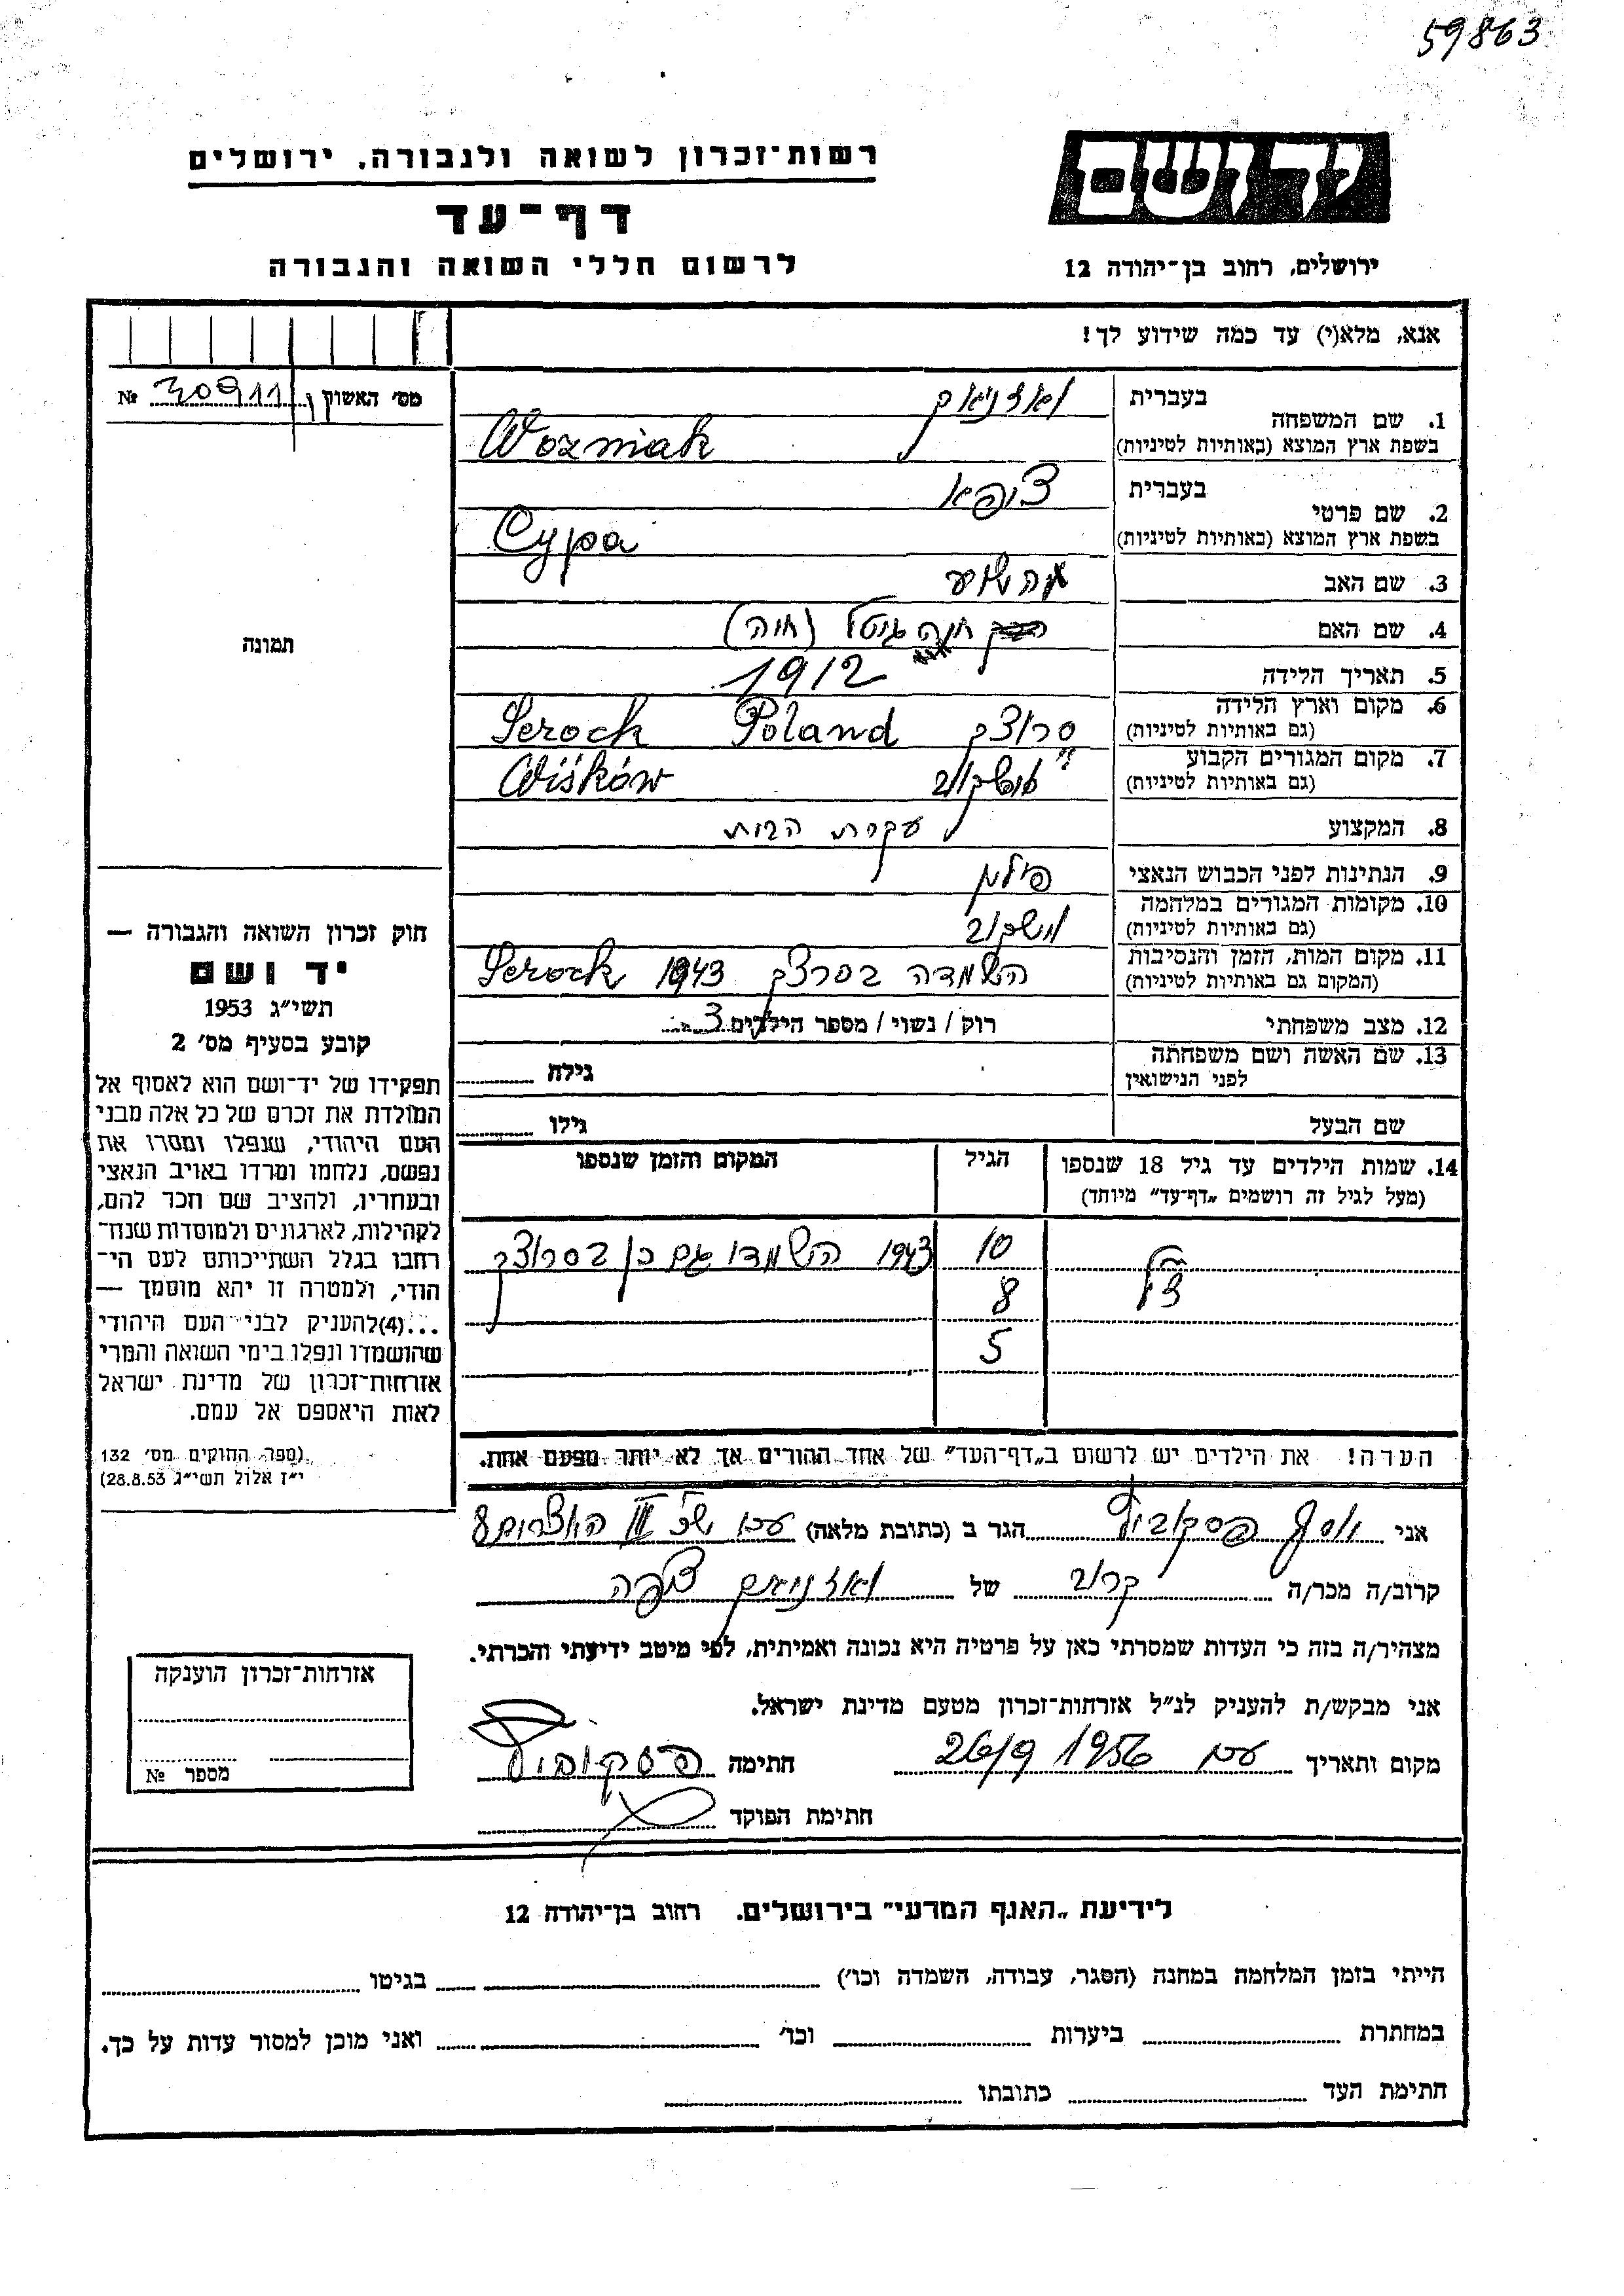 59863
ידושם
רשות־זכרון לשואה ולגבורה. ירושלים
דף־עד
לרשום חללי השואה והגבורה
ירושלים, רחוב בן־יהודה 12
אנא, מלא(י) עד כמה שידוע לך!
מס׳ האשוק
№ 30911
1. שם המשפחה
בעברית
וואזניאק
בשפת ארץ המוצא (באותיות לטיניות)
Wozniak
2. שם פרטי
בעברית
ציפא
בשפת ארץ המוצא (באותיות לטיניות)
Cypa
3. שם האב
4. שם האם
(חוה)
5. תאריך הלידה
1912
6. מקום וארץ הלידה
(גם באותיות לטיניות)
סרוצק Poland Serock
7. מקום המגורים הקבוע
(גם באותיות לטיניות)
Wiśków
8. המקצוע
עקרת הבית
9. הנתינות לפני הכבוש הנאצי
פולין
10. מקומות המגורים במלחמה
(גם באותיות לטיניות)
וישקוב
11. מקום המות, הזמן והנסיבות
(המקום גם באותיות לטיניות)
השמדה בסרוצק 1943 Serock
12. מצב משפחתי
רוק / נשוי / מספר הילדים 3
13. שם האשה ושם משפחתה
לפני הנישואין
גילה
שם הבעל
גילו
14. שמות הילדים עד גיל 18 שנספו
(מעל לגיל זה רושמים „דף־עד” מיוחד)
הגיל
המקום והזמן שנספו
10
1943 השמדו גם כן בסרוצק
8
5
הערה! את הילדים יש לרשום ב„דף־העד” של אחד ההורים אך לא יותר מפעם אחת.
תמונה
חוק זכרון השואה והגבורה —
יד ושם
תשי״ג 1953
קובע בסעיף מס׳ 2
תפקידו של יד־ושם הוא לאסוף אל
המולדת את זכרם של כל אלה מבני
העם היהודי, שנפלו ומסרו את
נפשם, נלחמו ומרדו באויב הנאצי
ובעחריו, ולהציב שם וזכר להם,
לקהילות, לארגונים ולמוסדות שנח־
רחבו בגלל השתייכותם לעם הי־
הודי, ולמטרה זו יהא מוסמך —
...(4)להעניק לבני העם היהודי
שהושמדו ונפלו בימי השואה והמרי
אזרחות־זכרון של מדינת ישראל
לאות היאספם אל עמם.
(ספר החוקים מס׳ 132
י״ז אלול תשי״ג 28.8.53)
אני יוסף פסקוביץ הגר ב (כתובת מלאה) עכו
קרוב/ה מכר/ה קרוב של וואזניאק ציפה
מצהיר/ה בזה כי העדות שמסרתי כאן על פרטיה היא נכונה ואמיתית, לפי מיטב ידיעתי והכרתי.
אני מבקש/ת להעניק לנ״ל אזרחות־זכרון מטעם מדינת ישראל.
מקום ותאריך עכו 26/9 1956 חתימה פסקוביץ
חתימת הפוקד
אזרחות־זכרון הוענקה
מספר №
לידיעת „האגף המדעי” בירושלים. רחוב בן־יהודה 12
הייתי בזמן המלחמה במחנה (הסגר, עבודה, השמדה וכו׳) בגיטו
במחתרת ביערות וכו׳ ואני מוכן למסור עדות על כך.
חתימת העד כתובתו